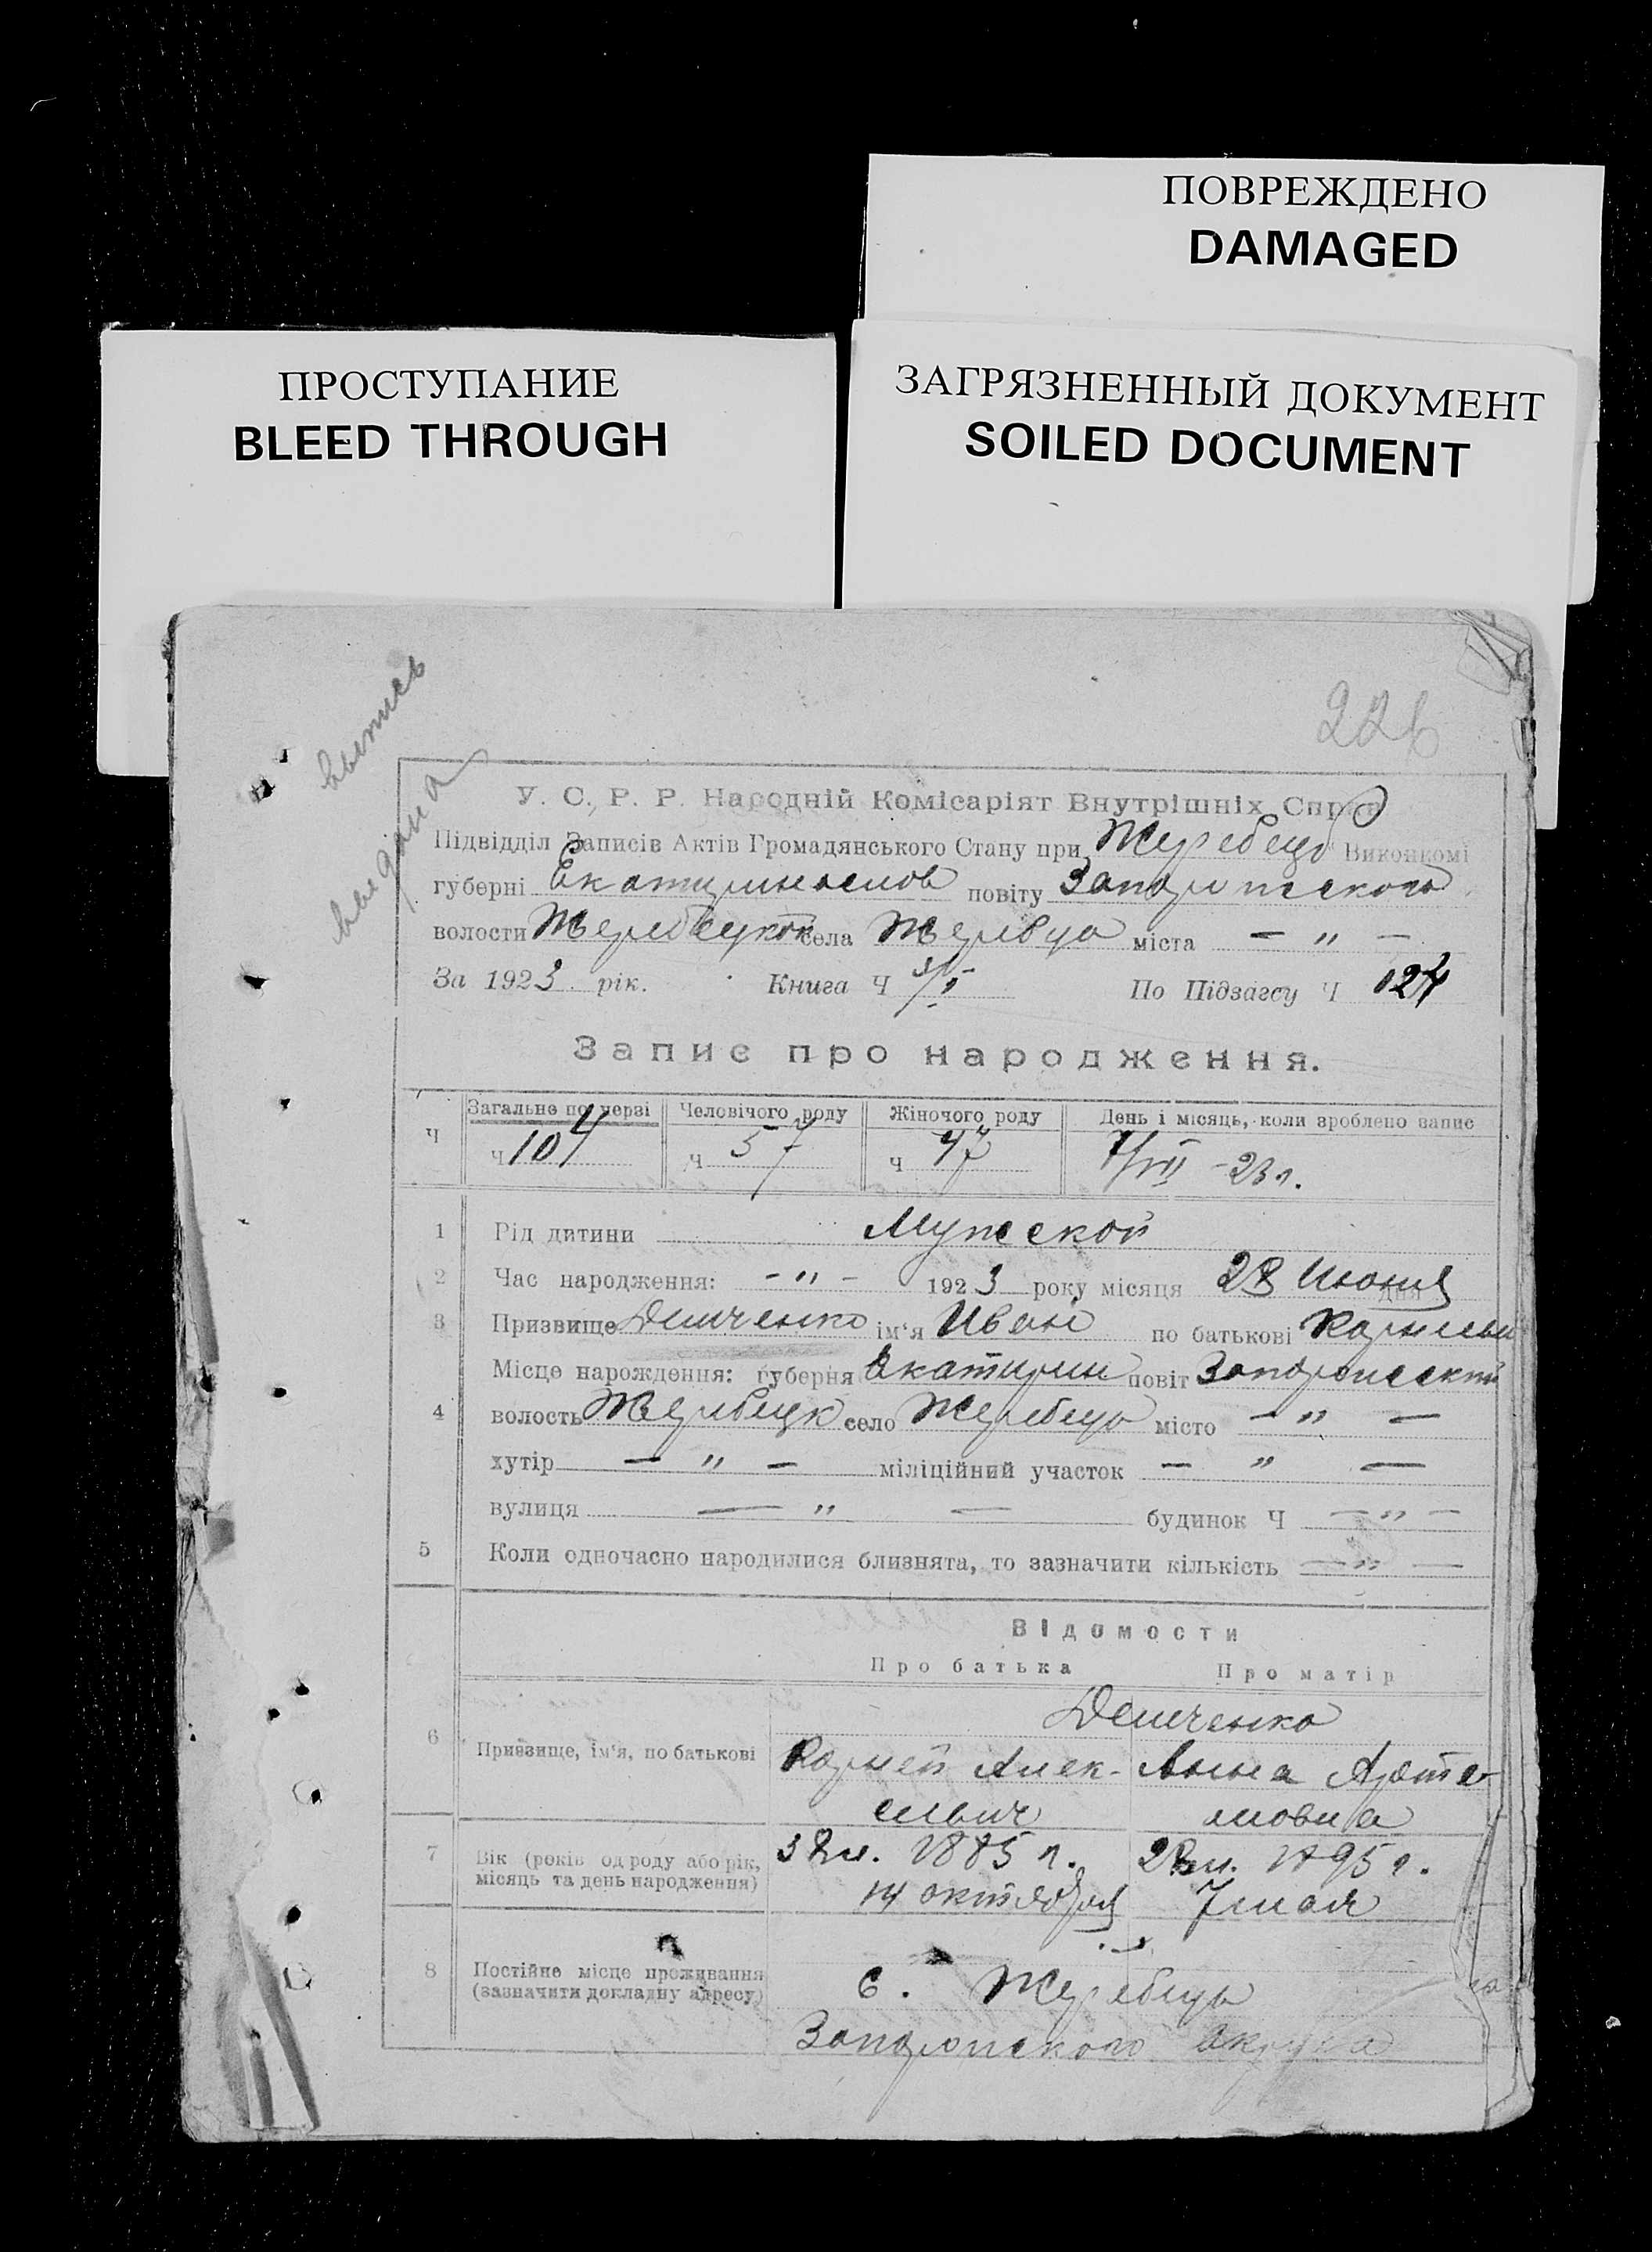 ПОВРЕЖДЕНО
DAMAGED
ПРОСТУПАНИЕ
BLEED THROUGH
ЗАГРЯЗНЕННЫЙ ДОКУМЕНТ
SOILED DOCUMENT
выпись
выдана
226
У. С. Р. Р. Народній Комісаріят Внутрішніх Справ
Підвідділ Записів Актів Громадянського Стану при Жеребецк Виконкомі
губерні Екатеринослав повіту Запорожского
волости Жеребецкой села Жеребца міста — " —
За 1923 рік. Книга Ч По Підзагсу Ч 124
Запис про народження.
Ч Загальне по черзі Человічого роду Жіночого роду День і місяць, коли зроблено запис
ч 104 ч 57 ч 47 7/VII -23 г.
1 Рід дитини Мужской
2 Час народження: - " - 1923 року місяця 28 Июня дня
3 Призвище Демченко ім'я Иван по батькові Корнеевич
Місце нарождення: губерня Екатерин повіт Запорожский
4 волость Жеребецк село Жеребец місто — " —
хутір — " — міліційний участок — " —
вулиця — " — будинок Ч — " —
5 Коли одночасно народилися близнята, то зазначити кількість — " —
Відомости
Про батька Про матір
Демченко
6 Призвище, ім'я, по батькові Корней Алек- Анна Арте-
сеевич мовна
7 Вік (років од роду або рік, місяць та день народження) 38 л. 1885 г. 28 л. 1895 г.
14 октября 7 мая
8 Постійне місце проживання (зазначити докладну адресу) С. Жеребец
Запорожского округа